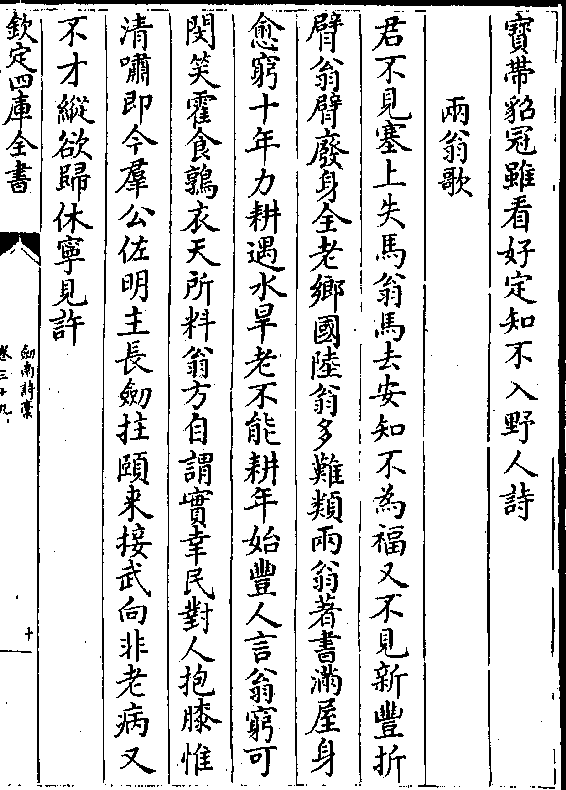 寳帶貂冠雖看好定知不入野人詩
兩翁歌
君不見塞上失馬翁馬去安知不為福又不見新豐折
臂翁臂廢身全老鄉國陸翁多難類兩翁著書滿屋身
愈窮十年力耕遇水旱老不能耕年始豐人言翁窮可
閔笑霍食鶉衣天所料翁方自謂實幸民對人抱膝惟
清嘯即今羣公佐明主長劒拄頤来接武向非老病又
不才縱欲歸休寧見許
欽定四庫全書
劒南詩稾
卷三十九
十